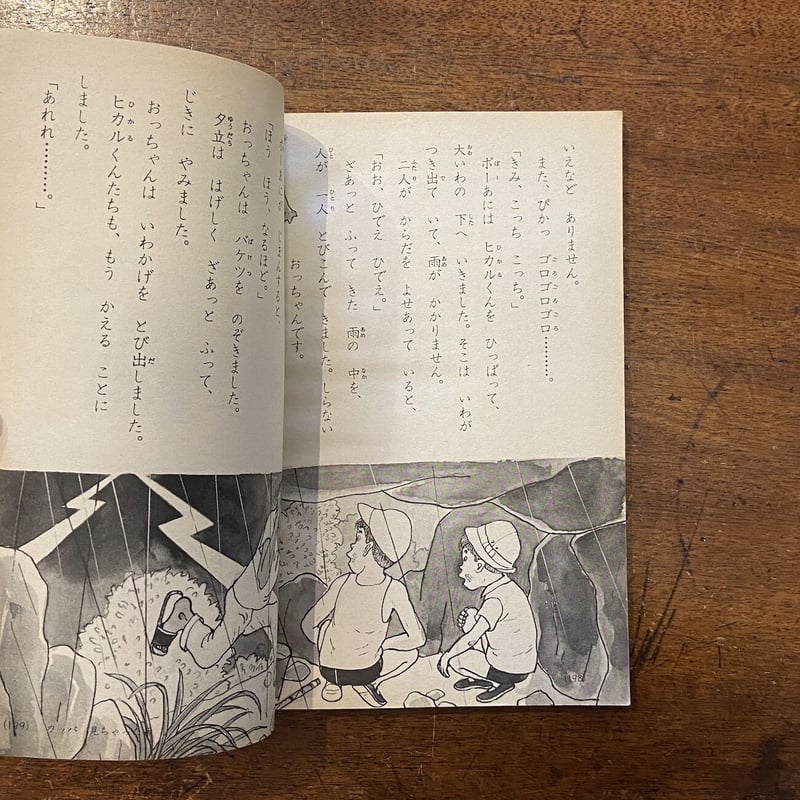 いえなど ありません。
また、ぴかっ ゴロゴロゴロ…………。
「きみ、こっち こっち。」
ボーあには ヒカルくんを ひっぱって、
大いわの 下へ いきました。そこは いわが
つき出て いて、雨が かかりません。
二人が からだを よせあって いると、
「おお、ひでえ ひでえ。」
ざあっと ふって きた 雨の 中を、
人が 一人 とびこんで きました。しらない
おっちゃんです。
(198)
じまんすると、
「ほう ほう、なるほど。」
おっちゃんは バケツを のぞきました。
夕立は はげしく ざあっと ふって、
じきに やみました。
おっちゃんは いわかげを とび出しました。
ヒカルくんたちも、もう かえる ことに
しました。
「あれれ…………。」
(199) カッパ 見ちゃ